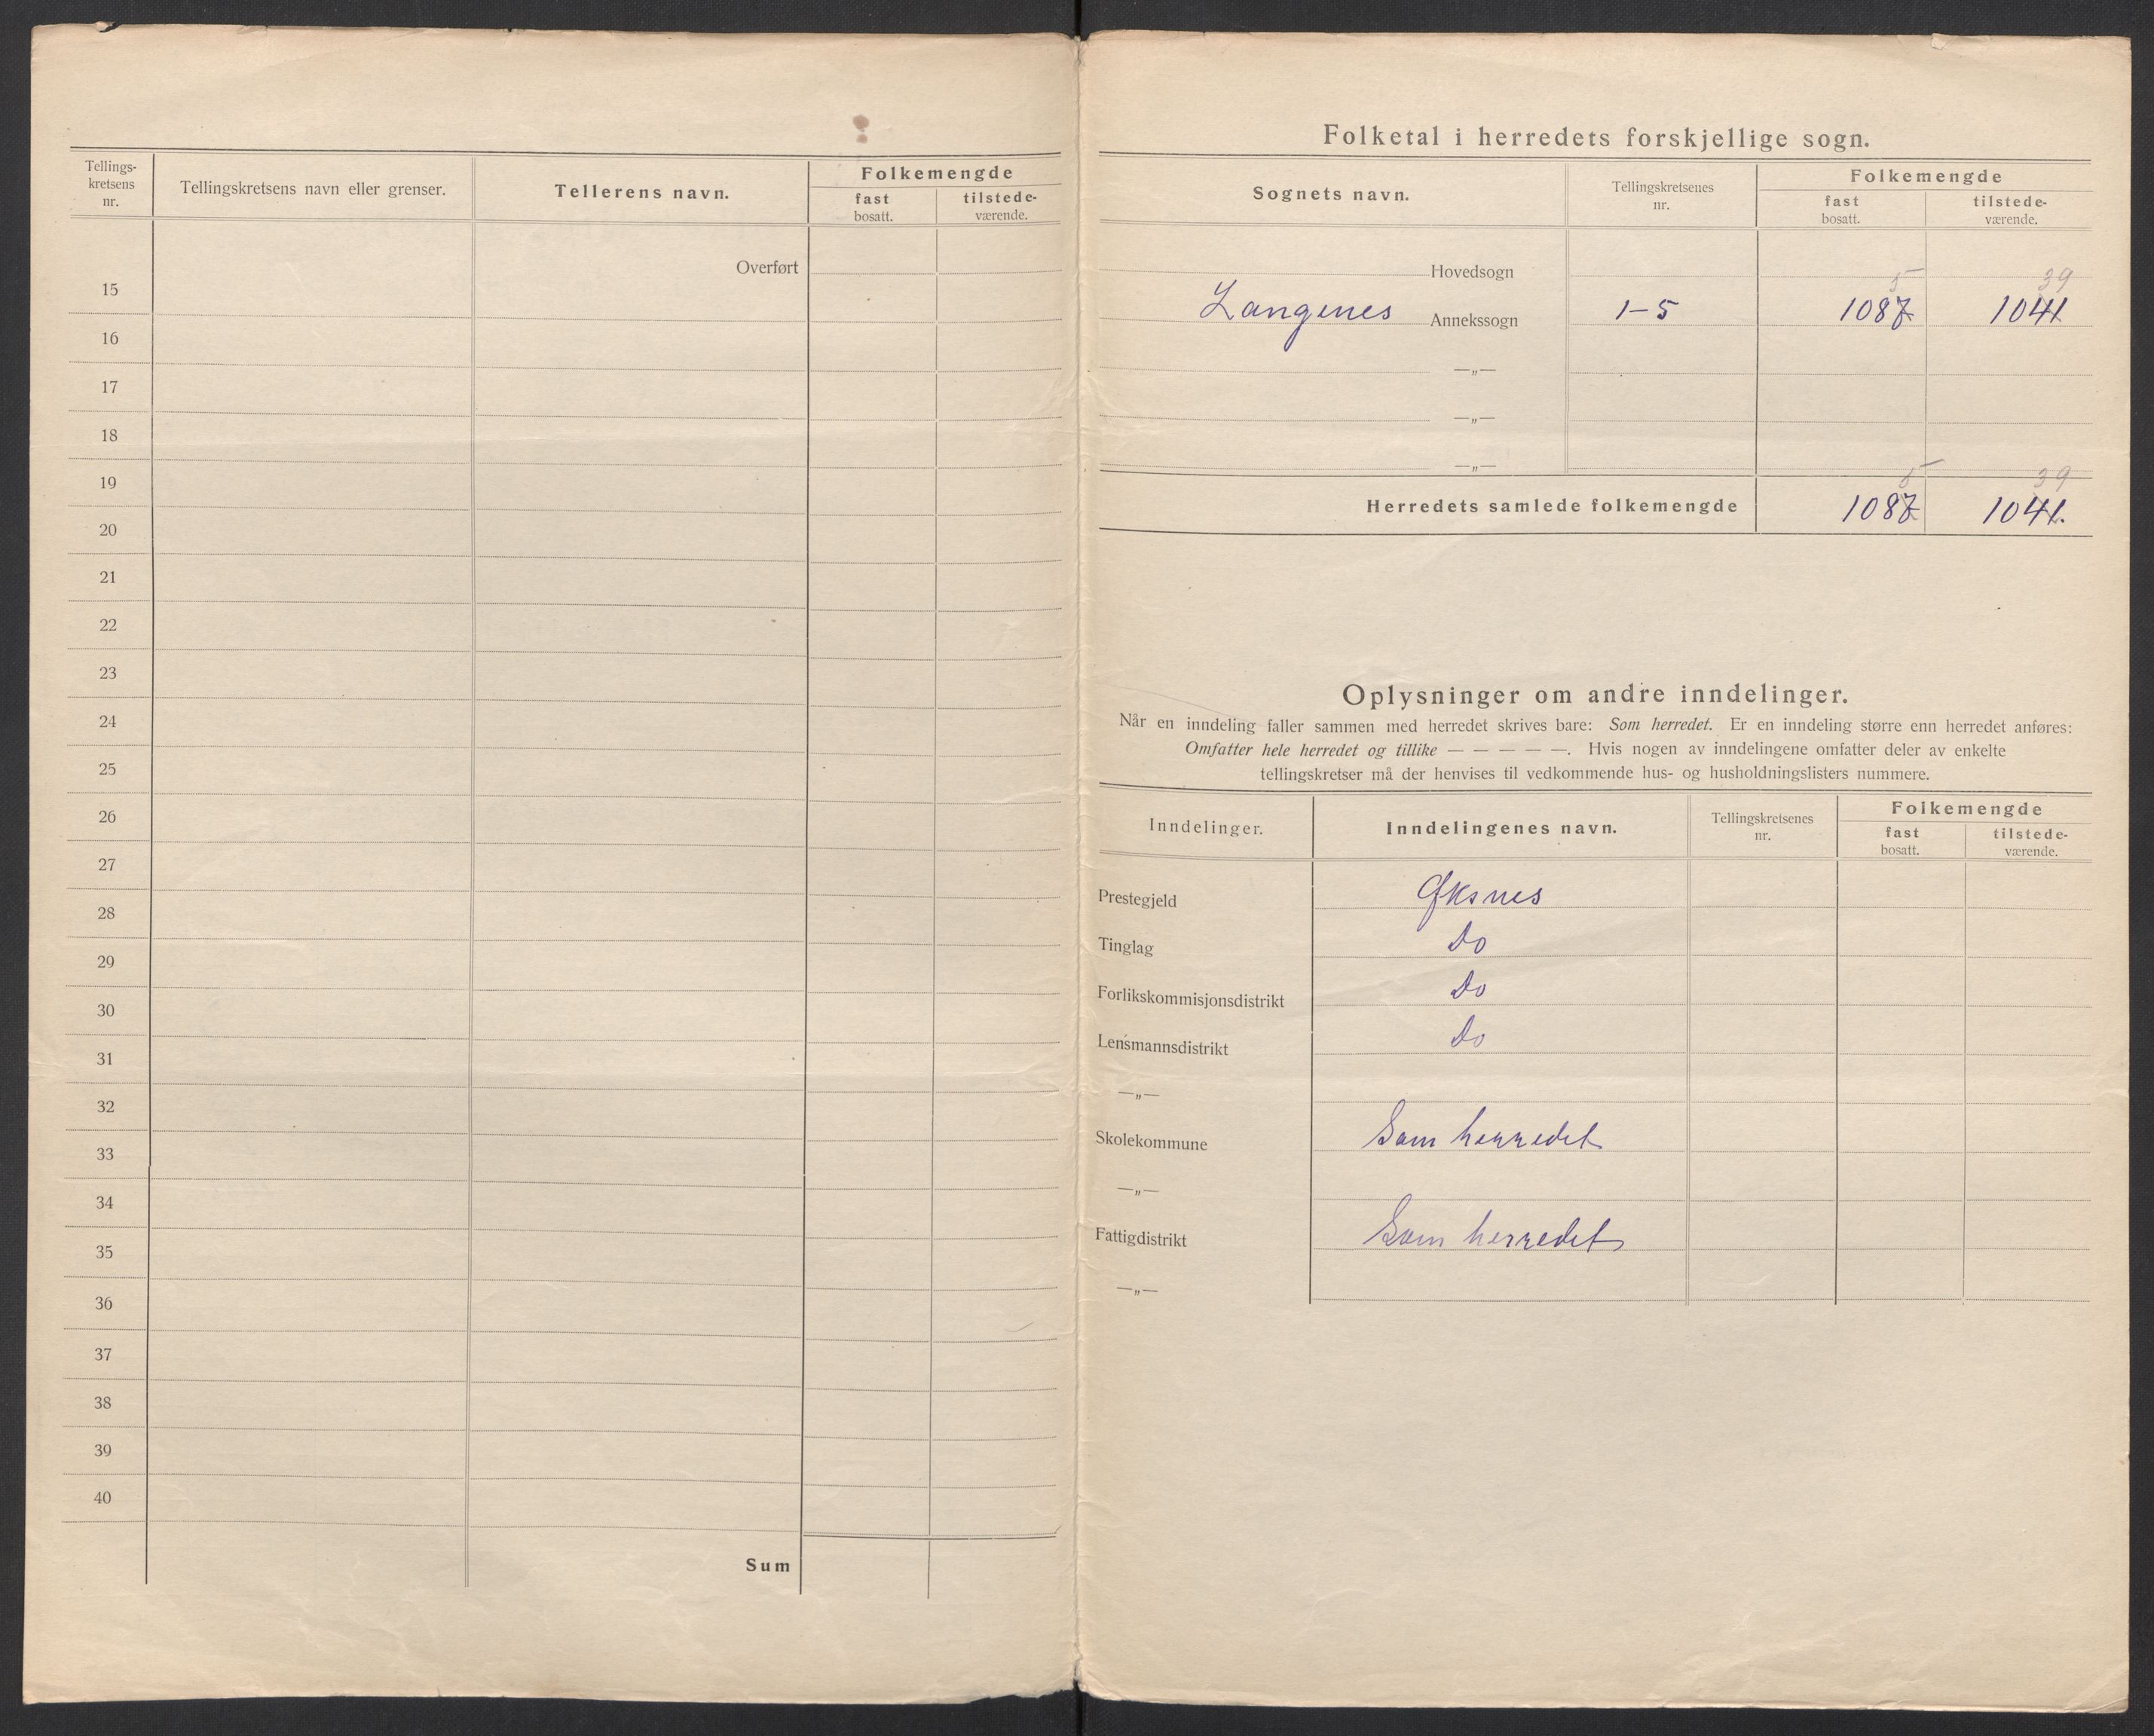 Tellings-
kretsens
nr.
Tellingskretsens navn eller grenser.
Tellerens navn.
Folkemengde
fast
bosatt.
tilstede-
værende.
Overført
15
16
17
18
19
20
21
22
23
24
25
26
27
28
29
30
31
32
33
34
35
36
37
38
39
40
Sum
Folketal i herredets forskjellige sogn.
Sognets navn.
Tellingskretsenes
nr.
Folkemengde
fast
bosatt.
tilstede-
værende.
Hovedsogn
5 39
Langenes Annekssogn 1-5 1087 1041
—„—
—„—
—„—
5 39
Herredets samlede folkemengde 1087 1041.
Oplysninger om andre inndelinger.
Når en inndeling faller sammen med herredet skrives bare: Som herredet. Er en inndeling større enn herredet anføres:
Omfatter hele herredet og tillike — — — — —. Hvis nogen av inndelingene omfatter deler av enkelte
tellingskretser må der henvises til vedkommende hus- og husholdningslisters nummere.
Inndelinger.
Inndelingenes navn.
Tellingskretsenes
nr.
Folkemengde
fast
bosatt.
tilstede-
værende.
Prestegjeld Øksnes
Tinglag Do
Forlikskommisjonsdistrikt Do
Lensmannsdistrikt Do
—„—
Skolekommune Som herredet
—„—
Fattigdistrikt Som herredet
—„—